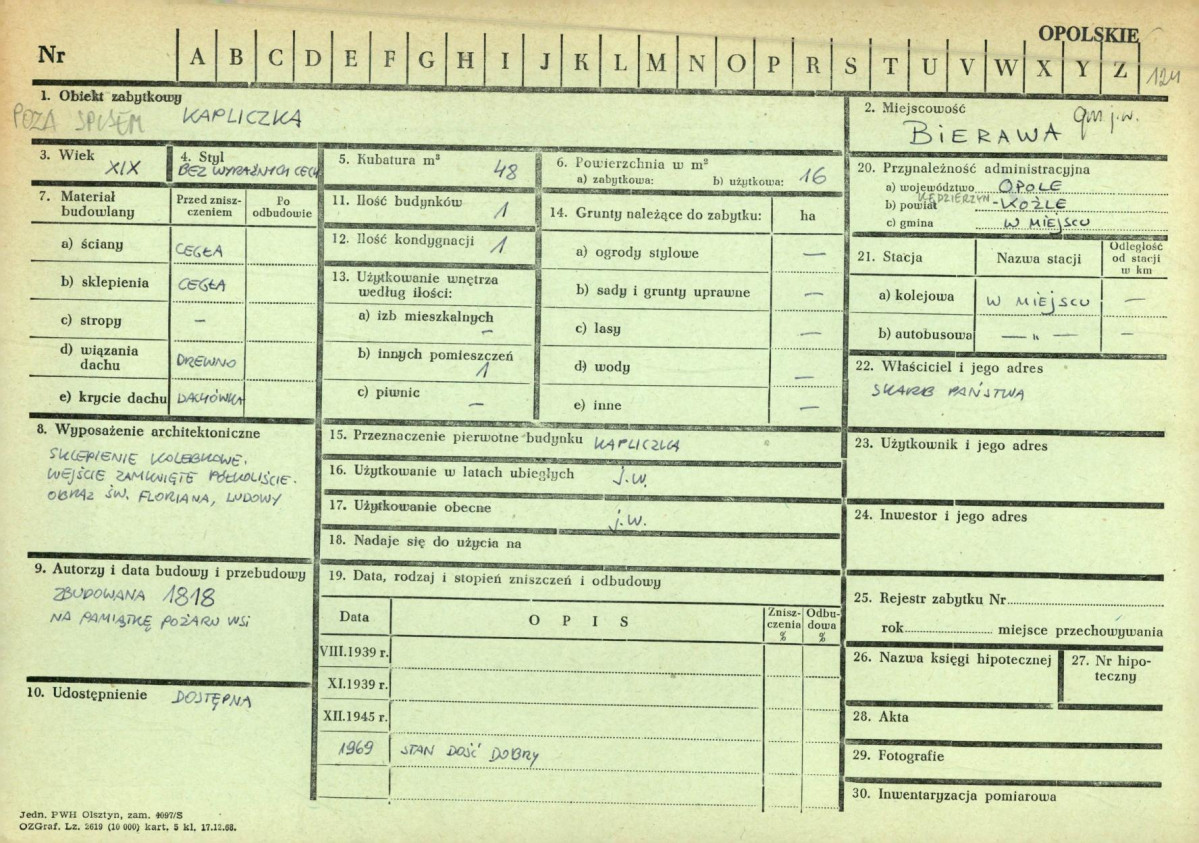 OPOLSKIE
Nr A B C D E F G H I J K L M N O P R S T U V W X Y Z 124
1. Obiekt zabytkowy
POZA SPISEM KAPLICZKA
2. Miejscowość
BIERAWA gm j.w.
3. Wiek
XIX
4. Styl
BEZ WYRAŹNYCH CECH
5. Kubatura m³
48
6. Powierzchnia w m²
a) zabytkowa: b) użytkowa: 16
7. Materiał budowlany
Przed znisz-
czeniem
Po
odbudowie
a) ściany CEGŁA
b) sklepienia CEGŁA
c) stropy –
d) wiązania
dachu DREWNO
e) krycie dachu DACHÓWKA
8. Wyposażenie architektoniczne
SKLEPIENIE KOLEBKOWE.
WEJŚCIE ZAMKNIĘTE PÓŁKOLIŚCIE.
OBRAZ ŚW. FLORIANA, LUDOWY
9. Autorzy i data budowy i przebudowy
ZBUDOWANA 1818
NA PAMIĄTKĘ POŻARU WSI
10. Udostępnienie DOSTĘPNA
11. Ilość budynków 1
12. Ilość kondygnacji 1
13. Użytkowanie wnętrza
według ilości:
a) izb mieszkalnych
–
b) innych pomieszczeń
1
c) piwnic –
14. Grunty należące do zabytku: ha
a) ogrody stylowe –
b) sady i grunty uprawne –
c) lasy –
d) wody –
e) inne –
15. Przeznaczenie pierwotne budynku KAPLICZKA
16. Użytkowanie w latach ubiegłych j.w.
17. Użytkowanie obecne j.w.
18. Nadaje się do użycia na
19. Data, rodzaj i stopień zniszczeń i odbudowy
Data O P I S Znisz-
czenia
% Odbu-
dowa
%
VIII.1939 r.
XI.1939 r.
XII.1945 r.
1969 STAN DOŚĆ DOBRY
20. Przynależność administracyjna
a) województwo OPOLE
b) powiat KĘDZIERZYN-KOŹLE
c) gmina W MIEJSCU
21. Stacja Nazwa stacji Odległość
od stacji
w km
a) kolejowa W MIEJSCU –
b) autobusowa — „ — –
22. Właściciel i jego adres
SKARB PAŃSTWA
23. Użytkownik i jego adres
24. Inwestor i jego adres
25. Rejestr zabytku Nr
rok miejsce przechowywania
26. Nazwa księgi hipotecznej
27. Nr hipo-
teczny
28. Akta
29. Fotografie
30. Inwentaryzacja pomiarowa
Jedn. PWH Olsztyn, zam. 4097/S
OZGraf. Lz. 2619 (10 000) kart. 5 kl. 17.12.68.